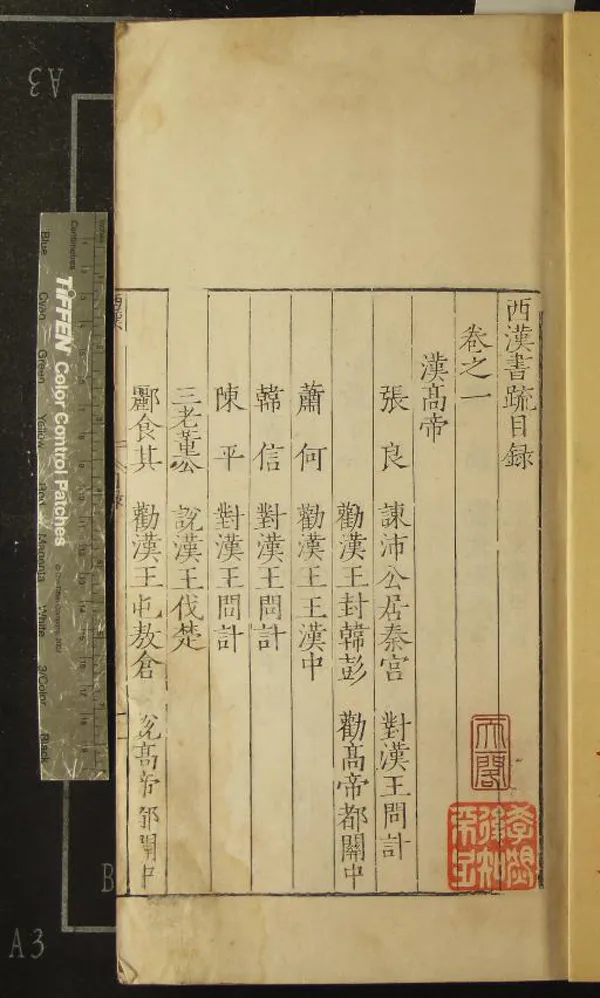 西漢書疏目録
卷之一
漢髙帝
張良 諫沛公居秦宮 對漢王問計
勸漢王封韓彭 勸髙帝都關中
蕭何 勸漢王王漢中
韓信 對漢王問計
陳平 對漢王問計
三老董公 說漢王伐楚
酈食其 勸漢王屯敖倉
A3
TIFFEN Color Control Patches
Centimetres
Blue
Cyan
Green
Yellow
Red
Magenta
White
3/Color
Black
B
A3